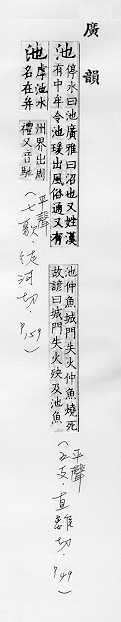 廣韻
池
停水曰池廣雅曰沼也又姓漢
有中牟令池瑗出風俗通又有
池仲魚城門失火仲魚燒死
故諺曰城門失火殃及池魚
(平聲
五支·直離切·P49)
池
虖池水
名在并
州界出周
禮又音馳
(平聲
七歌·徒河切·P159)